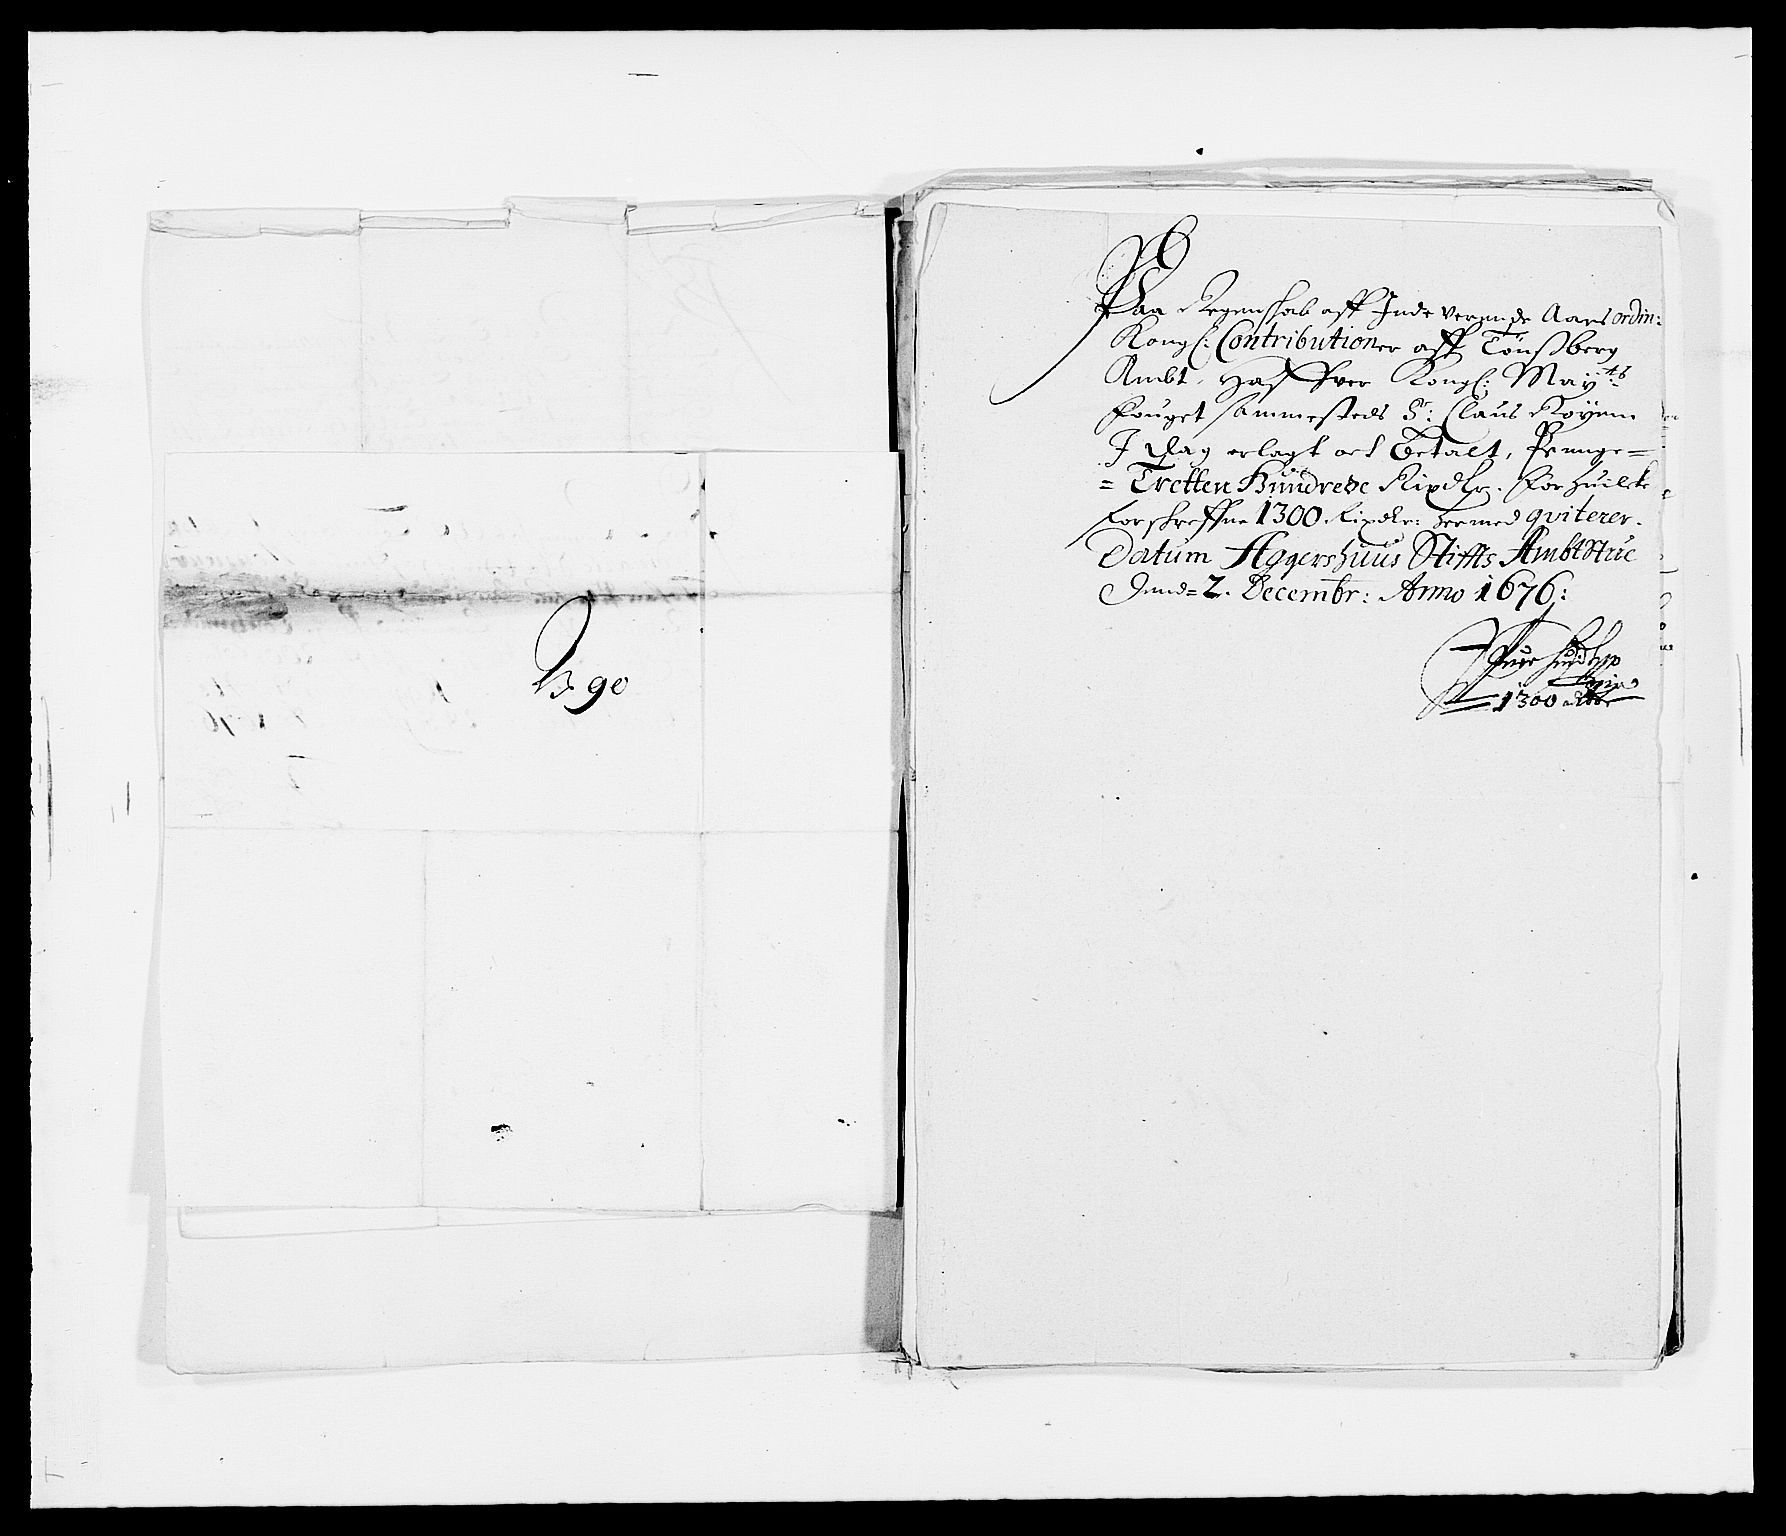 N 90
Paa Regenskab aff Inde verende Aars ordin:
Kongl: Contributioner aff Tönsberg
Ambt, haffver Kongl: May:ts
Fouget sammesteds Sr: Claus Röyem
I dag erlagt och Betalt, Penge=
= Tretten Hundrede Rixdlr. For huilcke
forschreffne 1300 Rixdlr: hermed qviterer.
Datum Agershuus Stiffts AmbtStue
dend= 2. Decembr: Anno 1676:
1300 Rdr